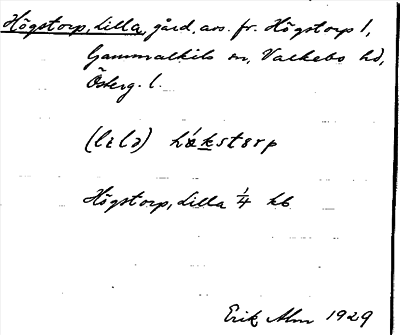 Högstorp, Lilla, gård, avs. fr. Högstorp 1,
Gammalkils sn, Valkebo hd,
Österg. l.
(lɩlə) hǿkstɔrp
Högstorp, Lilla 1/4 kb
Erik Alm 1929